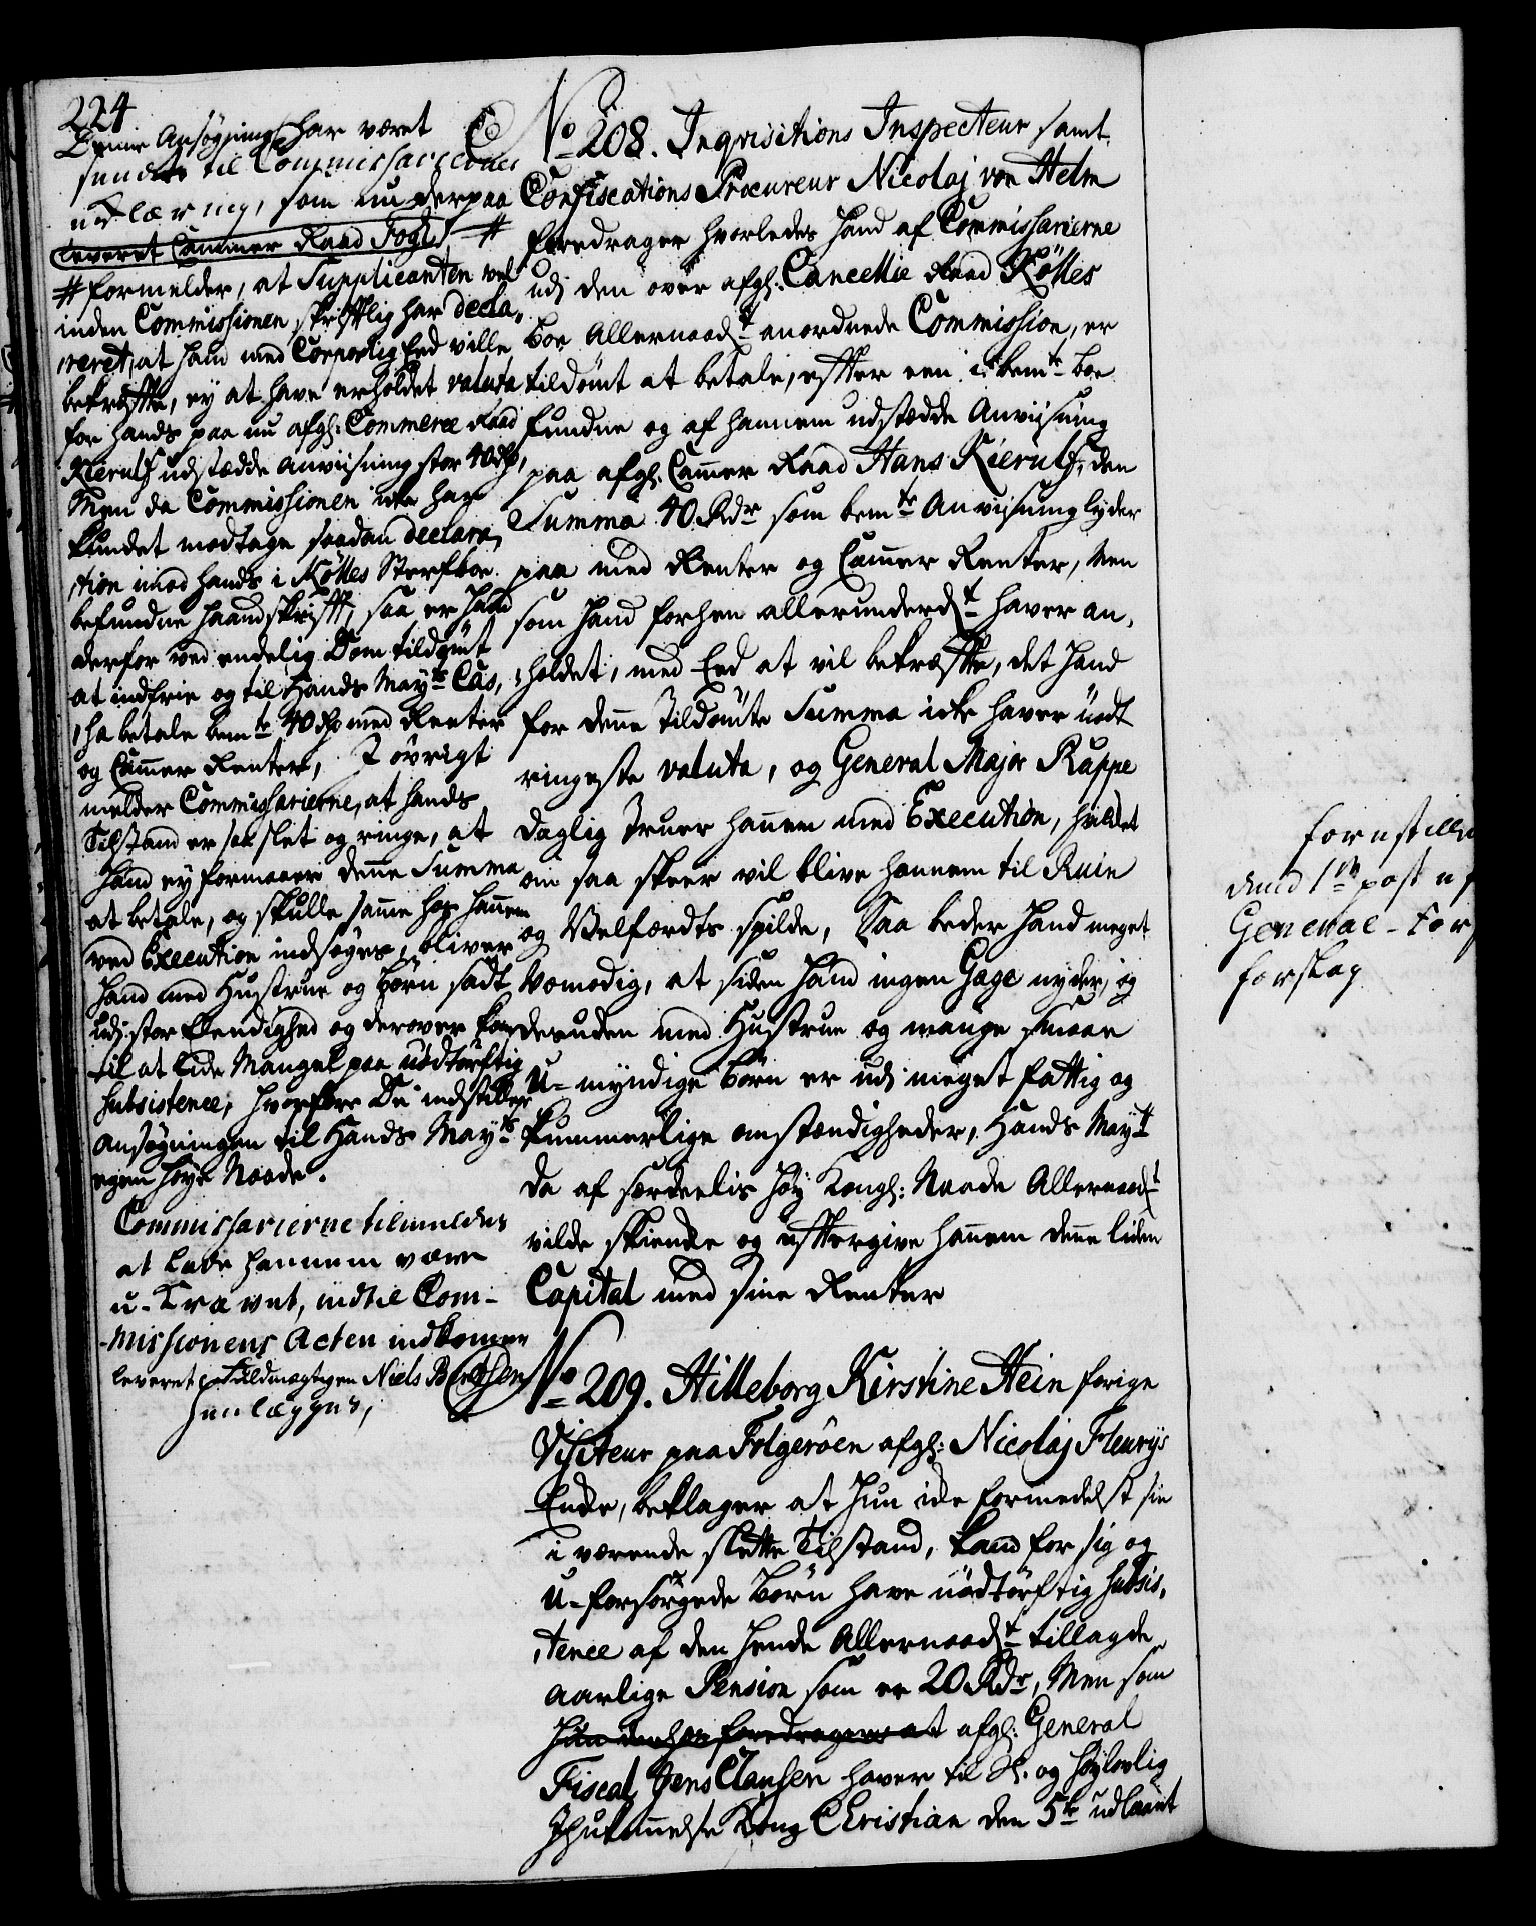 224
Denne Ansøgning har været
sendt til Commissariernes
udlæring, som nu derpaa
leveret Cammer Raad Fogh #
# formelder, at Supplicanten vel
inden Commissionen skrifftlig har decla,
,reret, at hand med Corporlig Eed ville
bekræffte, ey at have erholdet valuta
for hands paa nu afgl: Commerce Raad
Kierulf udstædde anviisning stor 40 rdr,
Men da Commissionen icke har
kundet modtage saadan declara,
,tion imod hands i Kölles Sterfboe
befundne haandskrifft, saa er hand
derfor ved endelig Dom tildømt
at indfrie og til Hands Mayts Cas,
,sa betale bemte 40 rdr med Renter
og Cammer Renter, I øvrigt
melder Commissarierne, at hands
Tilstand er saa slet og ringe, at
hand ey formaaer denne Summa
at betale, og skulle samme hos hannem
ved Execution indsøges, bliver
hand med Hustrue og børn sadt
udi stor Elendighed og derover kom
til at lide Mangel paa nødtørftig
subsistence, hvorfore De indstiller
ansøgningen til Hands Mayts
egen høye Naade.
Commissarierne tilmeldes
at lade hannem være
u-Krævet, indtil Com-
-missionens Acten indkommer
leveret Fuldmægtigen Niels Bentsen
henlægges,
No 208. Inqvisitions Inspecteur samt
Confiscations Procureur Nicolaj von Helm
foredrager hvorledes hand af Commissarierne
udj den over afgl: Cancellie Raad Kölles
boe Allernaadt anordnede Commission, er
tildømt at betale, effter een i bemte boe
fundne og af hannem udstædde Anviisning
paa afgl. Cammer Raad Hans Kierulf, den
Summa 40 Rdr som bemte Anviisning lyder
paa med Renter og Cammer Renter, Men
som hand forhen allerunderdt haver an,
,holdet, med Eed at vil bekræffte, det hand
for denne tildømte Summa icke haver nødt
ringeste valuta, og General Major Rappe
daglig truer hannem med Execution, hvilcket
om saa skeer vil blive hannem til Ruin
og Velfærdts spilde, Saa beder hand meget
Vemodig, at siden hand ingen Gage nyder, og
desuden med Hustrue og mange smaae
U-myndige børn er udj meget fattig og
kummerlige omstændigheder, Hands Mayt
da af særdeelis høy Kongl: Naade Allernaadt
vilde skiencke og efftergive hannem denne liden
Capital med sine Renter
No 209. Hilleborg Kirstine Hein forige
Visiteur paa Folgerøen afgl: Nicolaj Fleurys
Encke, beklager at hun icke formedelst sin
i værende slette Tilstand, kand for sig og
U-forsørgede børn have nødtørftig subsis,
,tence af den hende Allernaadt tillagde
aarlige Pension som er 20 Rdr, Men som
hun derhos foredrager at afgl: General
Fiscal Jens Clausen haver til Sl. og høylovlig
Ihukommelse Kong Christian den 5te udlaant
General-For
forslag